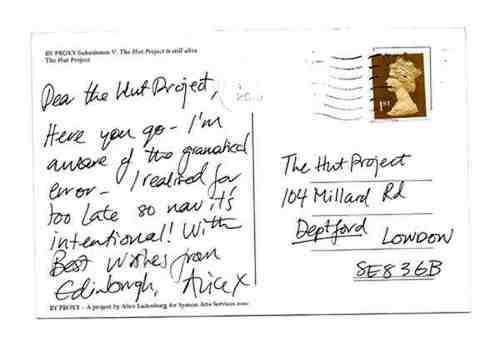 BY PROXY Submission V. The Hut Project is still alive
The Hut Project
Dear the Hut Project,
Here you go - I'm
aware of the gramatical
error - I realised far
too late so now it's
intentional! With
Best Wishes from
Edinburgh, Alice X
BY PROXY - A project by Alice Ladenburg for System Arts Services
1ST
The Hut Project
104 Millard Rd
Deptford LONDON
SE8 3GB